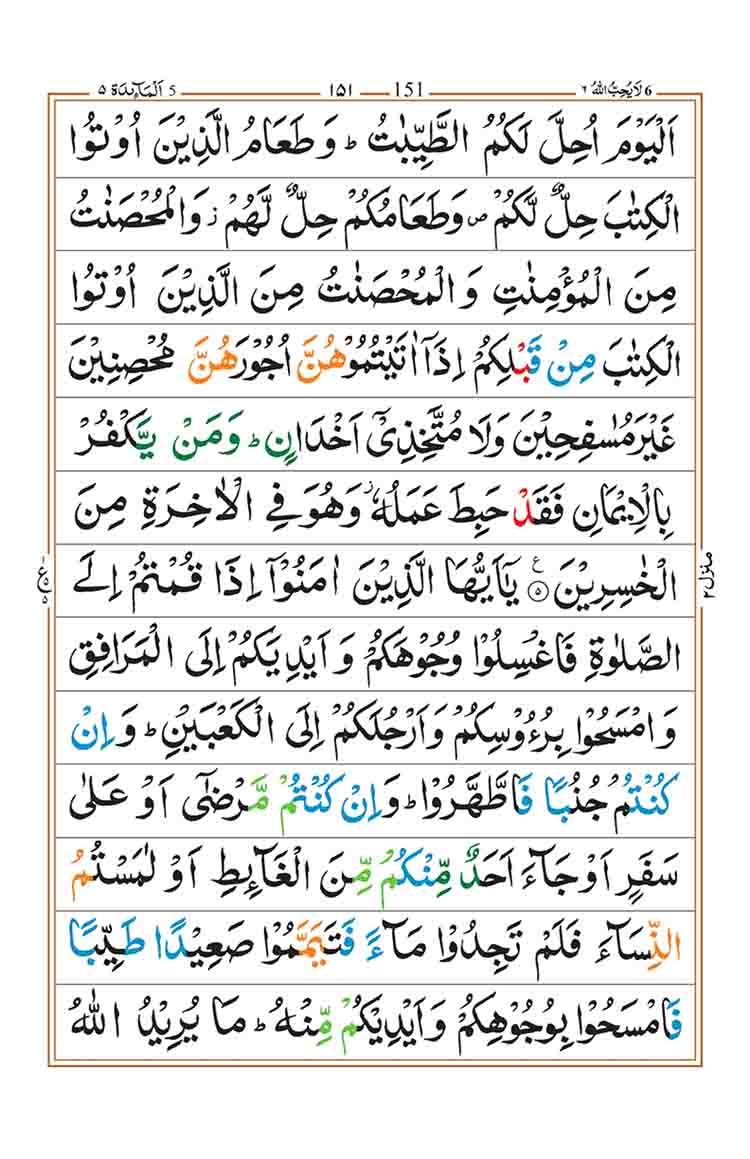 6 لَا يُحِبُّ اللهُ ٦ 151 ١٥١ 5 اَلْمَآئِدَة ٥
اَلْيَوْمَ اُحِلَّ لَكُمُ الطَّيِّبٰتُ ؕ وَ طَعَامُ الَّذِيْنَ اُوْتُوا
الْكِتٰبَ حِلٌّ لَّكُمْ ۪ وَطَعَامُكُمْ حِلٌّ لَّهُمْ ؗ وَالْمُحْصَنٰتُ
مِنَ الْمُؤْمِنٰتِ وَالْمُحْصَنٰتُ مِنَ الَّذِيْنَ اُوْتُوا
الْكِتٰبَ مِنْ قَبْلِكُمْ اِذَاۤ اٰتَيْتُمُوْهُنَّ اُجُوْرَهُنَّ مُحْصِنِيْنَ
غَيْرَ مُسٰفِحِيْنَ وَلَا مُتَّخِذِيْۤ اَخْدَانٍ ؕ وَمَنْ يَّكْفُرْ
بِالْاِيْمَانِ فَقَدْ حَبِطَ عَمَلُهٗ ؗ وَهُوَ فِي الْاٰخِرَةِ مِنَ
الْخٰسِرِيْنَ ۝٥ ع يٰۤاَيُّهَا الَّذِيْنَ اٰمَنُوْۤا اِذَا قُمْتُمْ اِلَى
الصَّلٰوةِ فَاغْسِلُوْا وُجُوْهَكُمْ وَ اَيْدِيَكُمْ اِلَى الْمَرَافِقِ
وَامْسَحُوْا بِرُءُوْسِكُمْ وَاَرْجُلَكُمْ اِلَى الْكَعْبَيْنِ ؕ وَاِنْ
كُنْتُمْ جُنُبًا فَاطَّهَّرُوْا ؕ وَاِنْ كُنْتُمْ مَّرْضٰۤى اَوْ عَلٰى
سَفَرٍ اَوْ جَآءَ اَحَدٌ مِّنْكُمْ مِّنَ الْغَآئِطِ اَوْ لٰمَسْتُمُ
النِّسَآءَ فَلَمْ تَجِدُوْا مَآءً فَتَيَمَّمُوْا صَعِيْدًا طَيِّبًا
فَامْسَحُوْا بِوُجُوْهِكُمْ وَاَيْدِيْكُمْ مِّنْهُ ؕ مَا يُرِيْدُ اللهُ
منزل ٢